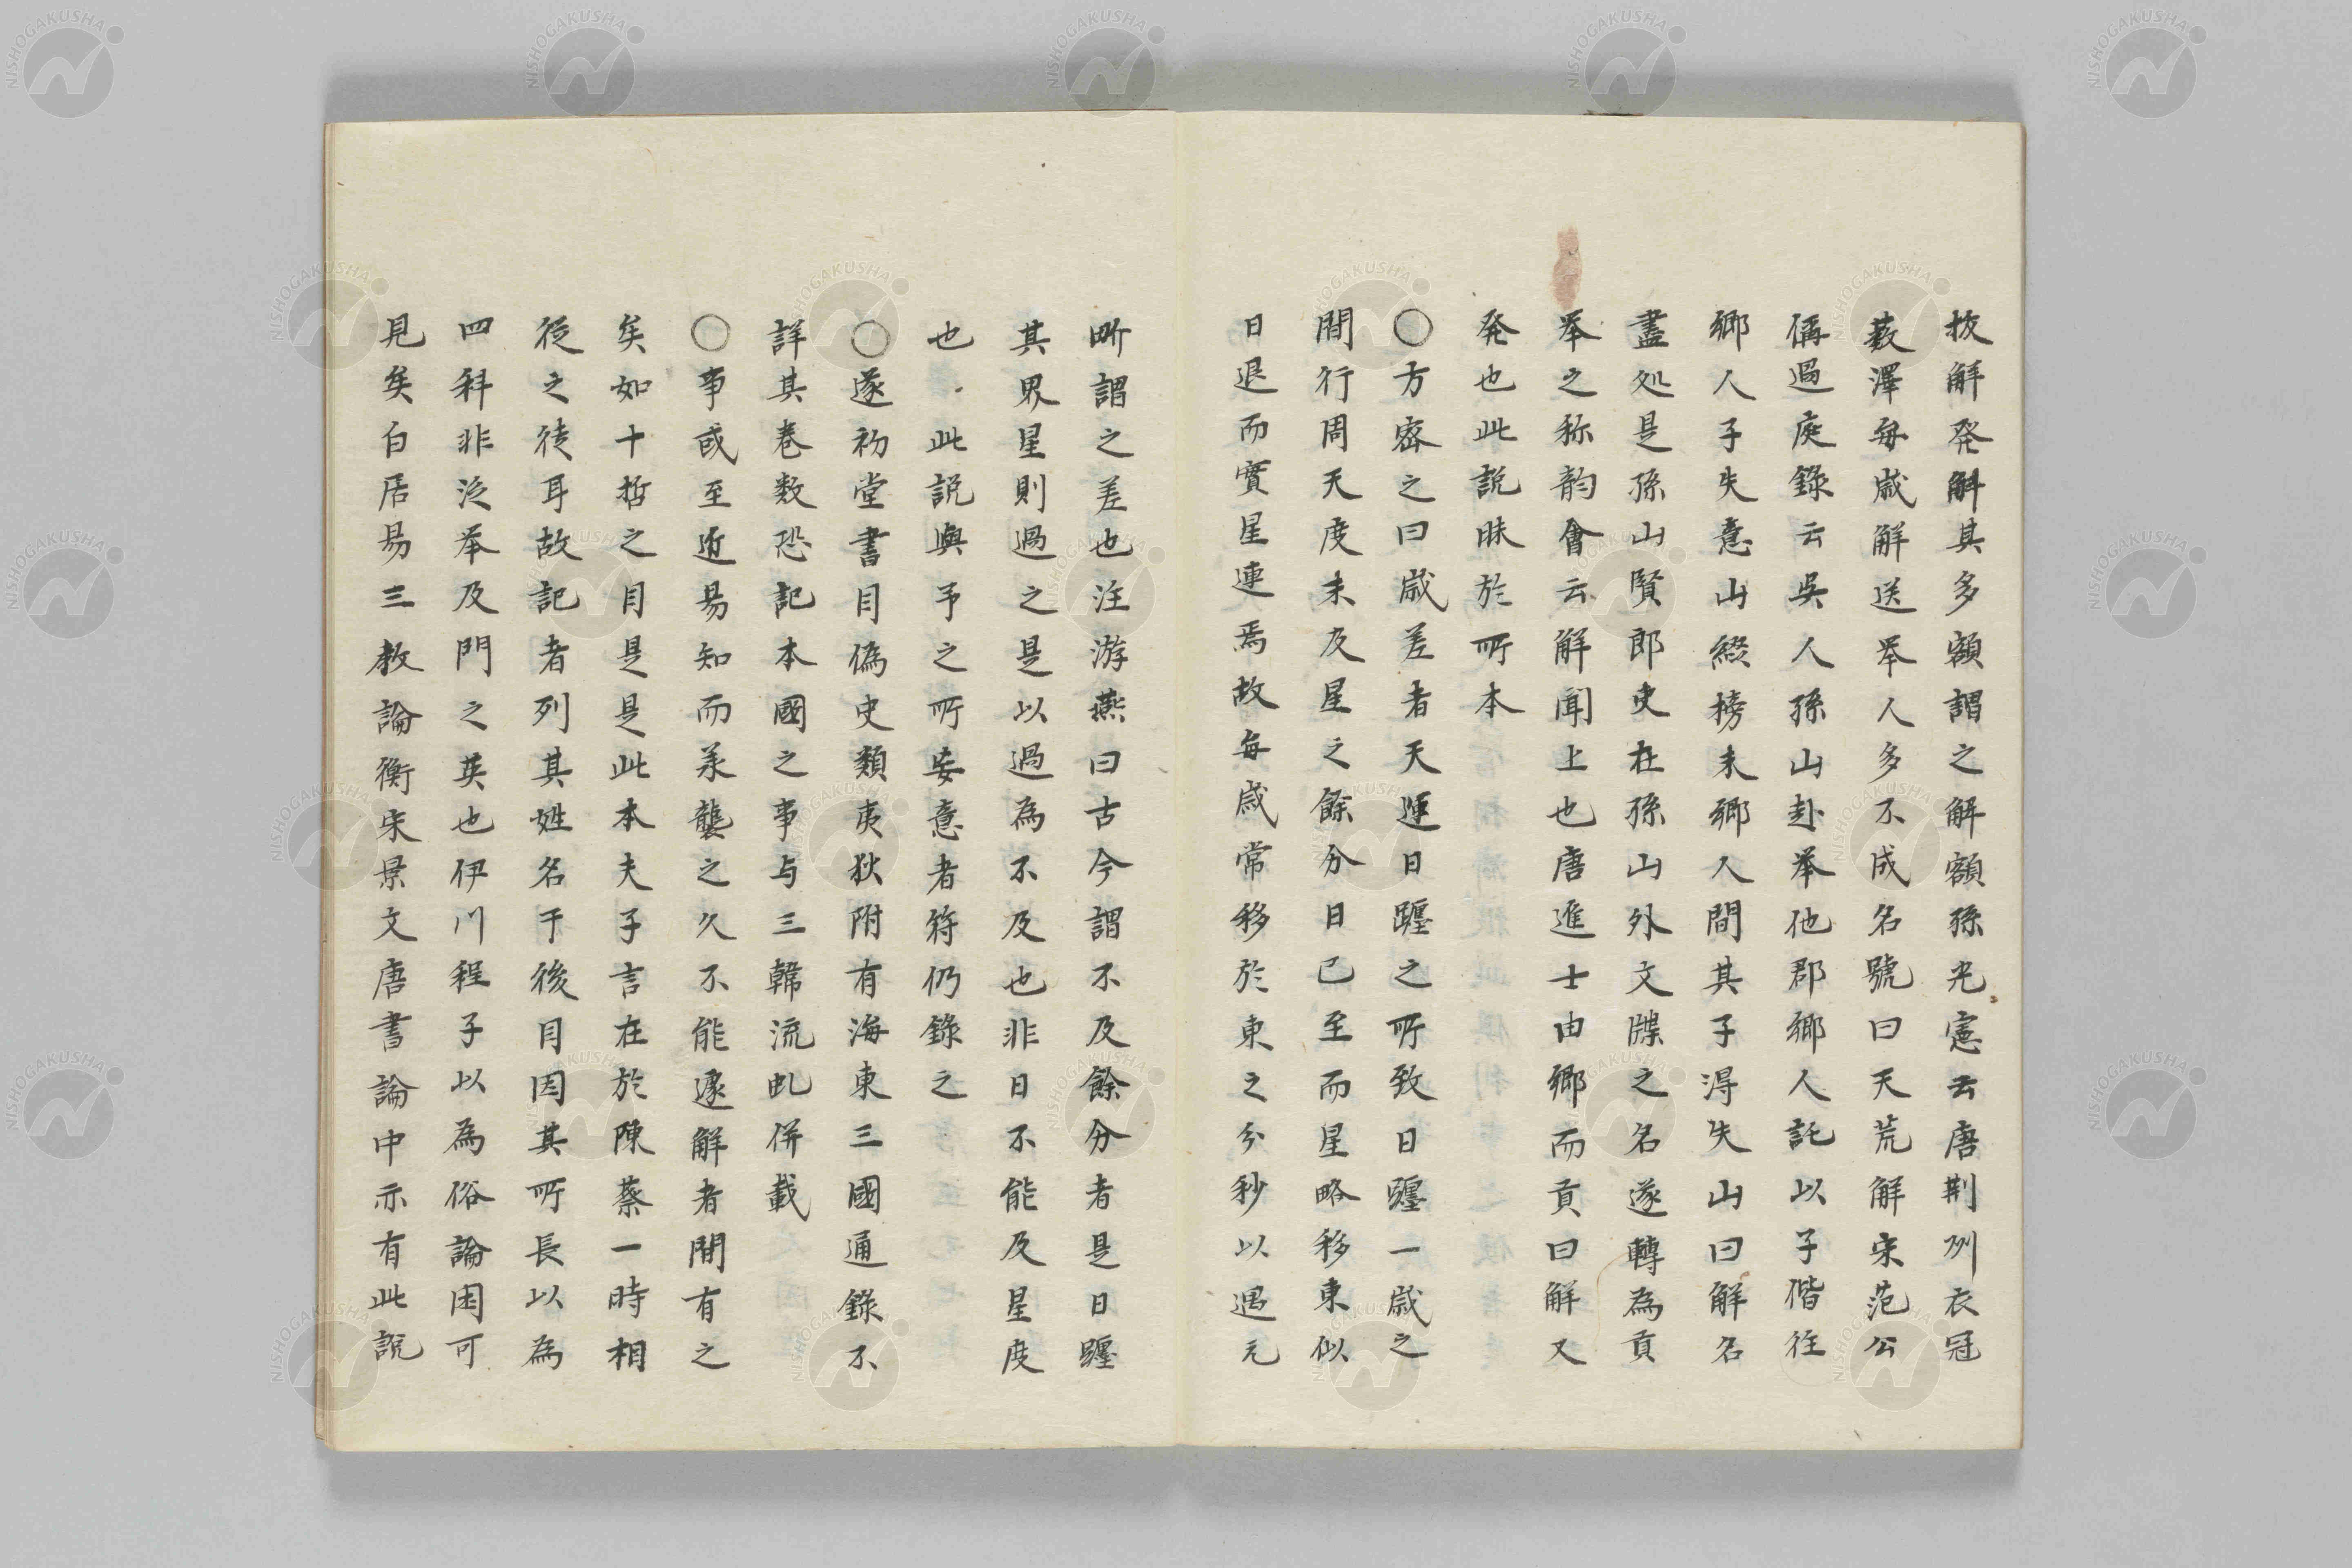 拔解発解其多額謂之解額孫光憲云唐荆州衣冠
薮澤每歳解送举人多不成名號曰天荒解宋范公
偁過庭錄云吳人孫山赴举他郡鄉人託以子偕往
鄉人子失意山綴榜末鄉人間其子淂失山曰解名
盡処是孫山賢郎更在孫山外文牒之名遂轉為貢
举之称韵會云解聞上也唐進士由鄉而貢曰解又
発也此説昧於所本
〇方密之曰歳差者天運日躔之所致日躔一歳之
間行周天度未及星之餘分日已至而星略移東似
日退而實星連焉故每歳常移於東之分秒以遇元
所謂之差也注游燕曰古今謂不及餘分者是日躔
其界星則過之是以過為不及也非日不能及星度
也此説與予之所妄意者符仍錄之
〇遂初堂書目偽史類夷狄附有海東三國通錄不
詳其卷数恐記本國之事与三韓流乱併載
〇事或至近易知而羕襲之久不能遽解者間有之
矣如十哲之目是是此本夫子言在於陳蔡一時相
従之徒耳故記者列其姓名于後目因其所長以為
四科非泛举及門之英也伊川程子以為俗論困可
見矣白居易三教論衡宋景文唐書論中示有此説